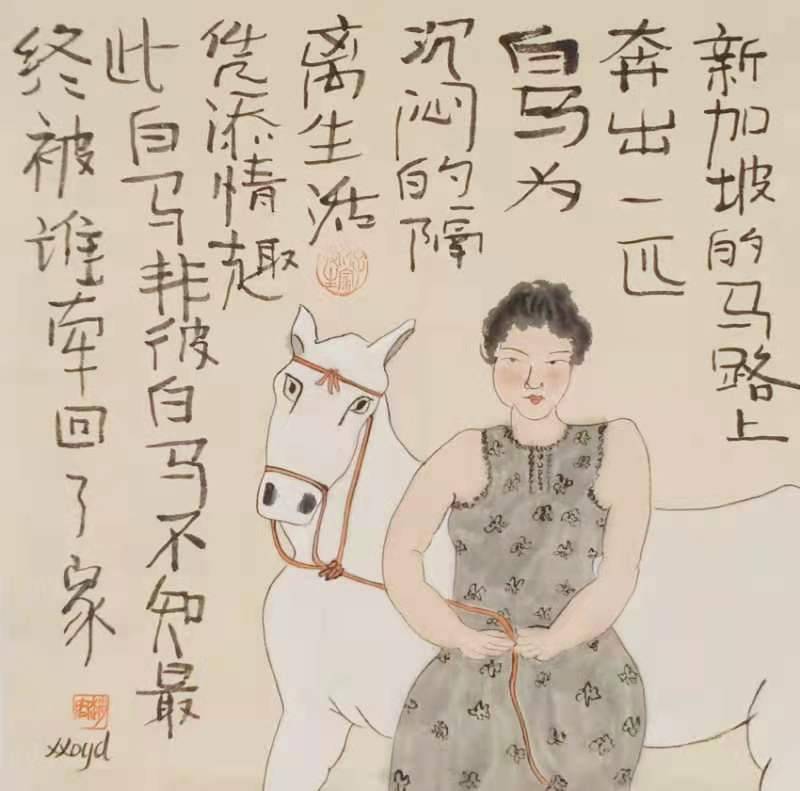 新加坡的马路上
奔出一匹
白马为
沉闷的隔
离生活
凭添情趣
此白马非彼白马不知最
终被谁牵回了家
xxoyd